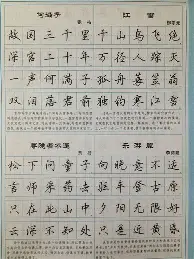 何满子
故国三千里
深宫二十年
一声何满子
双泪落君前
江雪
柳宗元
千山鸟飞绝
万径人踪灭
孤舟蓑笠翁
独钓寒江雪
寻隐者不遇
松下问童子
言师采药去
只在此山中
云深不知处
乐游原
李商隐
向晚意不适
驱车登古原
夕阳无限好
只是近黄昏